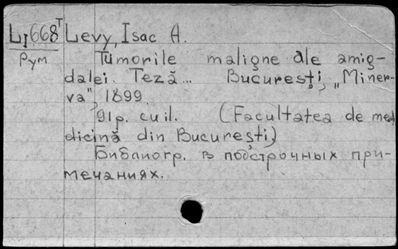 LI668T Levy, Isac A.
Рум Tumorile maligne ale amig-
dalei. Teză... București, „Miner-
va", 1899.
91p. cu il. (Facultatea de me
dicină din București)
Библиогр. в подстрочных при-
мечаниях.